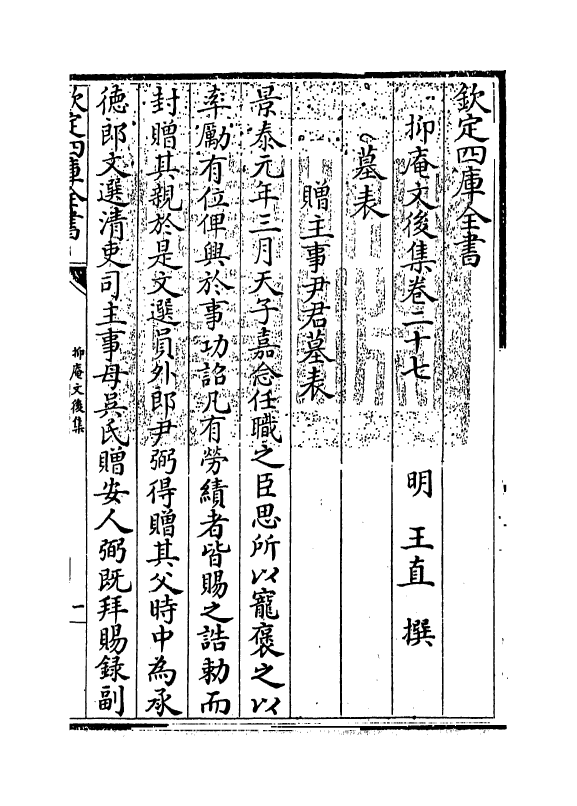 欽定四庫全書
抑庵文後集卷二十七
明 王直 撰
墓表
贈主事尹君墓表
景泰元年三月天子嘉念任職之臣思所以寵褒之以
率勵有位俾興於事功詔凡有勞績者皆賜之誥勅而
封贈其親於是文選員外郎尹弼得贈其父時中為承
徳郎文選清吏司主事母吳氏贈安人弼既拜賜録副
欽定四庫全書
抑庵文後集
一